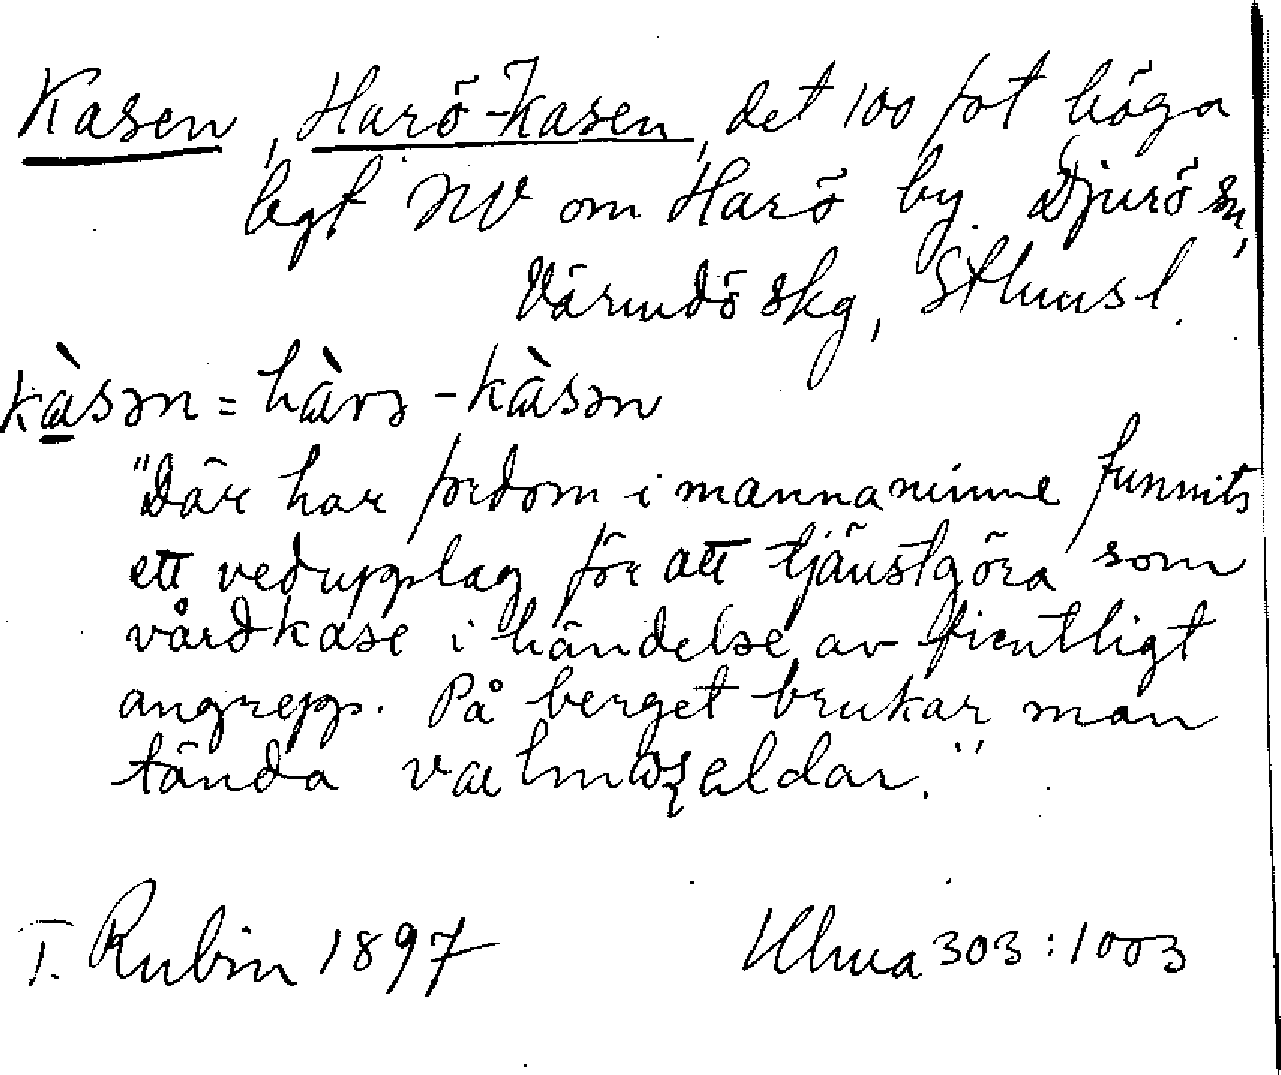 Kasen, Harö-Kasen, det 100 fot höga
bgt NV om Harö by. Djurö sn,
Värmdö skg, Sthms l.
kàsən = hàrə - kàsən
"Där har fordom i mannaminne funnits
ett vedupplag för att tjänstgöra som
vårdkase i händelse av fientligt
angrepp. På berget brukar man
tända eldar."
I. Rubin 1897
Ulma 303:1003